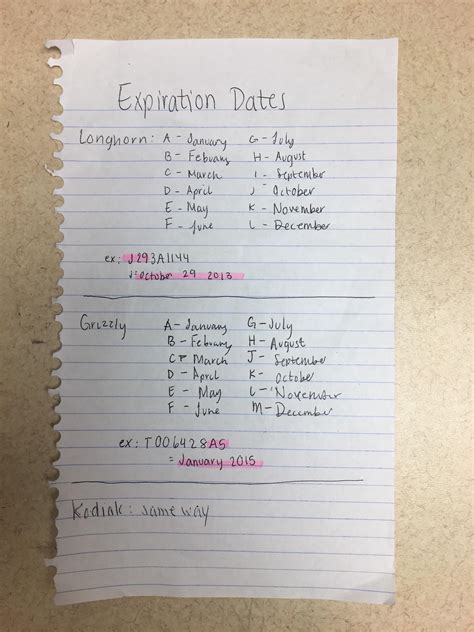 Expiration Dates
Longhorn: A - January G - July
B - Febuary H - August
C - March I - September
D - April J - October
E - May K - November
F - June L - December
ex: J293A1144
J: October 29 2013
Grizzly A - January G - July
B - Febuary H - August
C - March J - September
D - April K - October
E - May L - November
F - June M - December
ex: T006428A5
= January 2015
Kodiak: same way